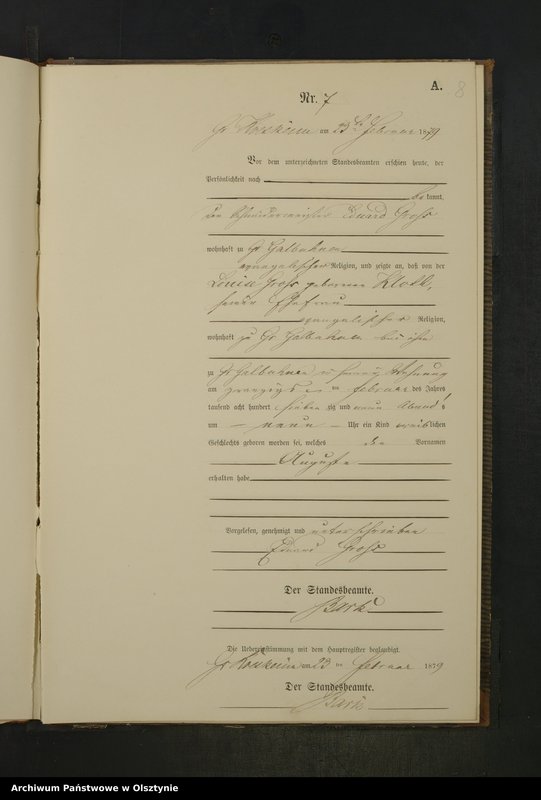 A. 8
Nr. 7
am 23 ten Februar 1879
Vor dem unterzeichneten Standesbeamten erschien heute, der
Persönlichkeit nach
be kannt,
der Schneidermeister Eduard Gross
wohnhaft zu Gr
evangelischer Religion, und zeigte an, daß von der
Louise Gross geborenen
seiner Ehefrau
evangelischer Religion,
wohnhaft zu Gr bei ihm
zu Gr in seiner Wohnung
am ten Februar des Jahres
tausend acht hundert sieben zig und neun Abends
um neun Uhr ein Kind weiblichen
Geschlechts geboren worden sei, welches den Vornamen
Auguste
erhalten habe
Vorgelesen, genehmigt und unterschrieben
Eduard Gross
Der Standesbeamte.
Die Uebereinstimmung mit dem Hauptregister beglaubigt.
am 23 ten Februar 1879
Der Standesbeamte.
Archiwum Państwowe w Olsztynie